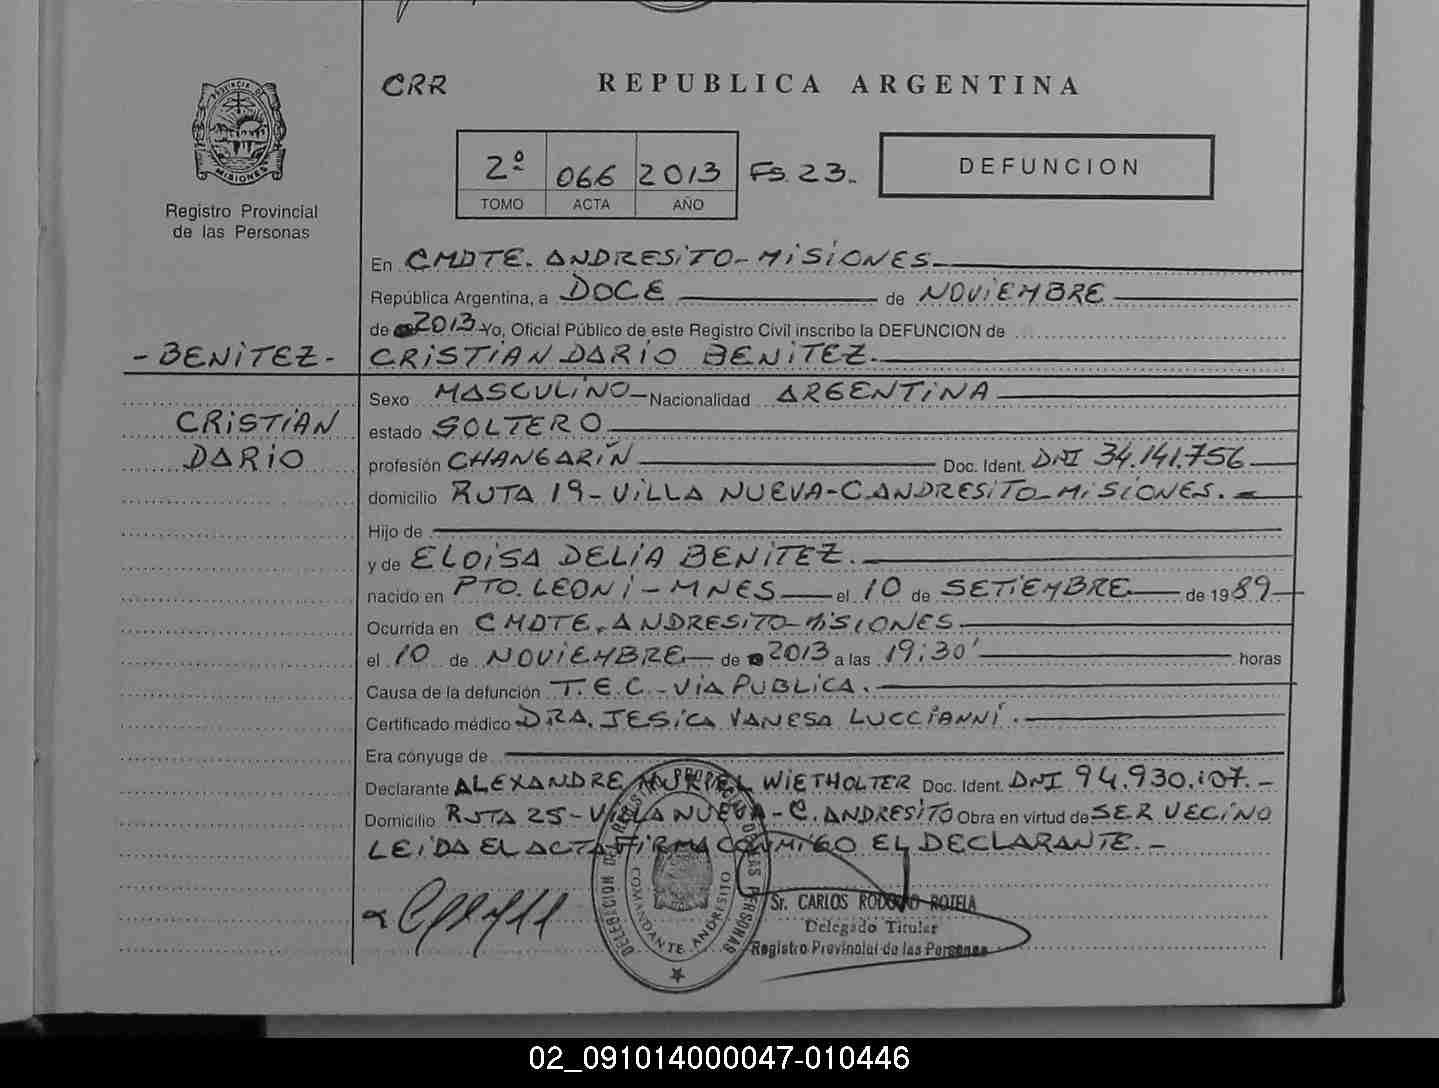 CRR
REPUBLICA ARGENTINA
2º 066 2013 Fs. 23.
TOMO ACTA AÑO
DEFUNCION
PROVINCIA DE
MISIONES
Registro Provincial
de las Personas
En CMDTE. ANDRESITO - MISIONES.
República Argentina, a DOCE de NOVIEMBRE
de 2013 Yo, Oficial Público de este Registro Civil inscribo la DEFUNCION de
- BENITEZ - CRISTIAN DARIO BENITEZ.
Sexo MASCULINO - Nacionalidad ARGENTINA
CRISTIAN estado SOLTERO
DARIO profesión CHANGARÍN Doc. Ident. DNI 34.141.756
domicilio RUTA 19 - VILLA NUEVA - C. ANDRESITO - MISIONES.
Hijo de
y de ELOISA DELIA BENITEZ.
nacido en PTO. LEONI - MNES el 10 de SETIEMBRE de 1989
Ocurrida en CMDTE. ANDRESITO - MISIONES
el 10 de NOVIEMBRE de 2013 a las 19:30' horas
Causa de la defunción T.E.C. - VIA PUBLICA.
Certificado médico DRA. JESICA VANESA LUCCIANNI.
Era cónyuge de
Declarante ALEXANDRE WIETHOLTER Doc. Ident. DNI 94.930.107. -
Domicilio RUTA 25 - VILLA NUEVA - C. ANDRESITO Obra en virtud de SER VECINO
LEIDA EL ACTA FIRMA CONMIGO EL DECLARANTE. -
DELEGACION DEL REGISTRO PROVINCIAL DE LAS PERSONAS
COMANDANTE ANDRESITO
Sr. CARLOS RODOLFO ROTELA
Delegado Titular
Registro Provincial de las Personas
02_091014000047-010446